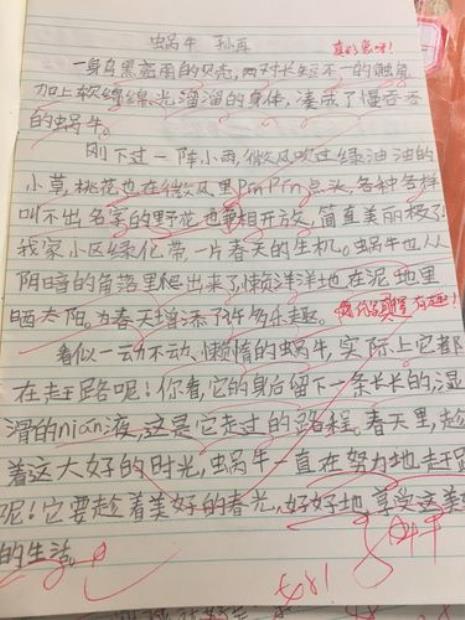 蜗牛 孙再
真的象呀!
一身乌黑 的贝壳,两对长短不一的触角
加上软绵绵、光溜溜的身体,凑成了慢吞吞
的蜗牛。
刚下过一阵小雨,微风吹过绿油油的
小草,桃花也在微风里pinpin点头,各种各样
叫不出名字的野花也 相开放,简直美丽极了!
我家小区绿化带,一片春天的生机。蜗牛也从
阴暗的角落里爬出来了,懒洋洋地在泥地里
晒太阳。为春天增添了许多乐趣。 有趣!
看似一动不动、懒惰的蜗牛,实际上它都
在赶路呢!你看,它的身后留下一条长长的湿
滑的nian液,这是它走过的路程。春天里,趁
着这大好的时光,蜗牛一直在努力地走路
呢!它要趁着美好的春光,好好地享受这美
的生活。